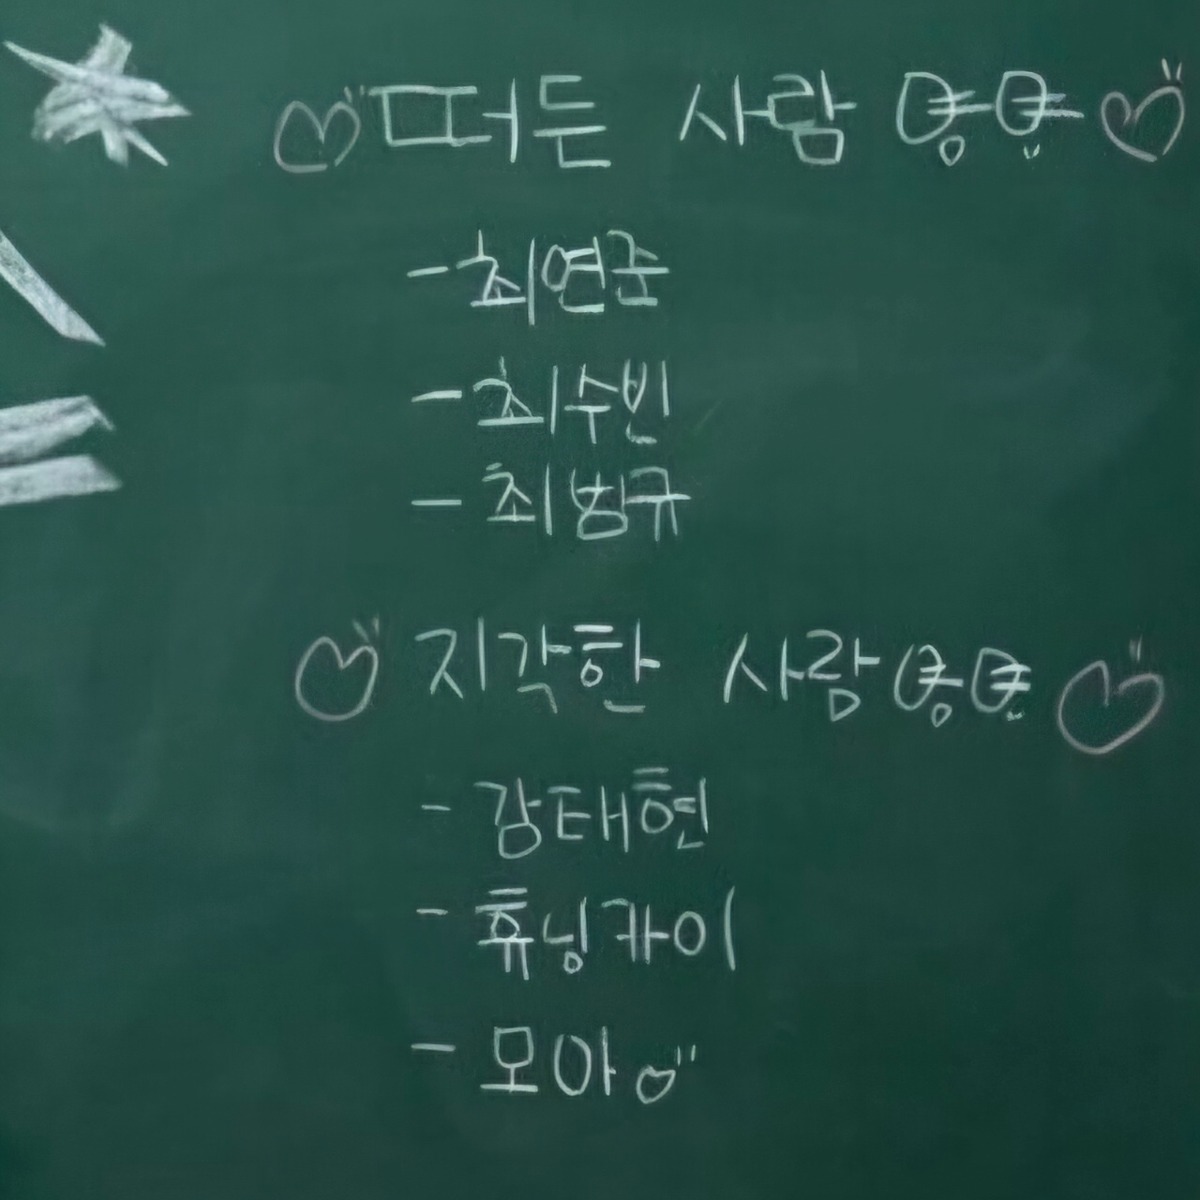 떠든 사람
- 최연준
- 최수빈
- 최범규
지각한 사람
- 강태현
- 휴닝카이
- 모아